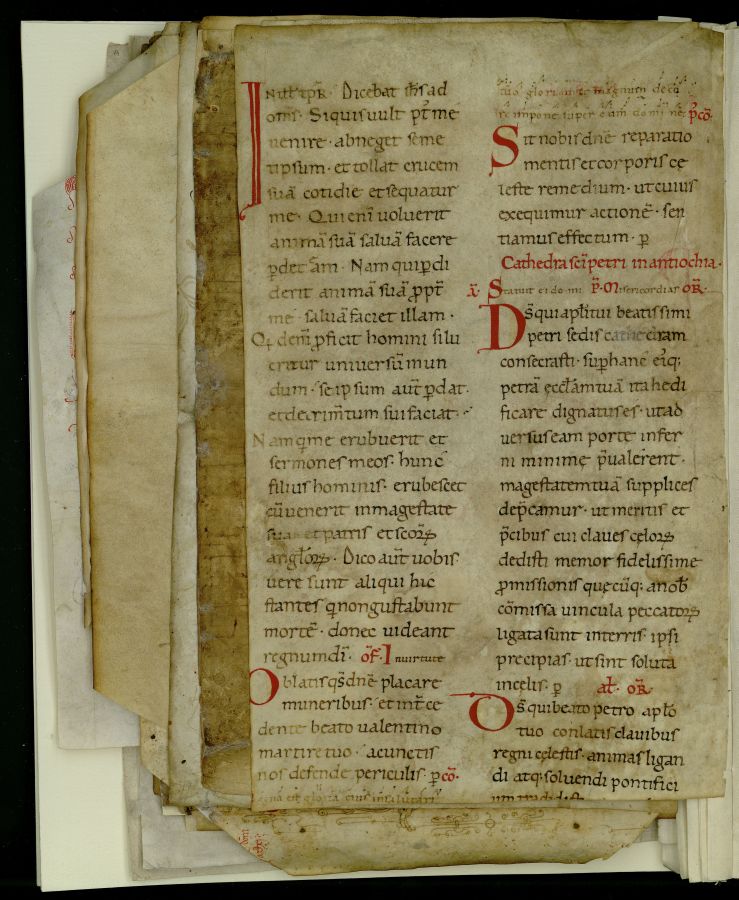 In ill t̄p̄r. Dicebat ih̄s ad
om̄s. Siquis uult p̄t me
uenire. abneget seme
tipsum. et tollat crucem
suā cotidie et sequatur
me. Qui enī uoluerit
animā suā saluā facere
ꝑdet eam. Nam qui ꝑdi
derit animā suā ꝓpt̄
me. saluā faciet illam.
Q̄d enī ꝓficit homini si lu
cretur uniuersū mun
dum. se ipsum aut̄ ꝑdat.
et detrim̄tum sui faciat.
Nam qui me erubuerit et
sermones meos. hunc
filius hominis. erubescet
cū uenerit in magestate
sua et patris et sc̄orꝝ
anglorꝝ. Dico aut̄ uobis
uere sunt aliqui hic
stantes qi non gustabunt
mortē. donec uideant
regnum dī. Of̄. In uirtute
Oblatis qs̄ dn̄e placare
muneribus. et int̄ce
dente beato ualentino
martire tuo. a cunctis
nos defende periculis. p̄cō.
gna est gloria eius in salutari
tuo gloriam et magnum deco
re impone super eum domine p̄cō.
Sit nobis dn̄e reparatio
mentis et corporis cę
leste remedium. ut cuius
exequimur actionē. sen
tiamus effectum. ꝑ
Cathedra sc̄i petri in antiochia.
ā. Statuit ei do mi p̄. Misericordiar OR̄.
Ds̄ qui aplitui beatissimi
petri sedis cathedram
consecrasti. suꝑ hanc eiq;
petrā ęcclām tuā ita hedi
ficare dignatus es. ut ad
uersus eam porte infer
ni minimę p̄ualerent.
magestatem tuā supplices
dep̄camur. ut meritis et
p̄cibus cui claues cęlorꝝ
dedisti memor fidelissime
ꝓmissionis quęcūq; an ob
cōmissa uincula peccatorꝝ
ligata sunt in terris. ipsi
precipias. ut sint soluta
in celis. ꝑ al̄. OR̄.
Ds̄ qui beato petro aplō
tuo conlatis clauibus
regni cęlestis. animas ligan
di atq; soluendi pontifici
um tradidisti